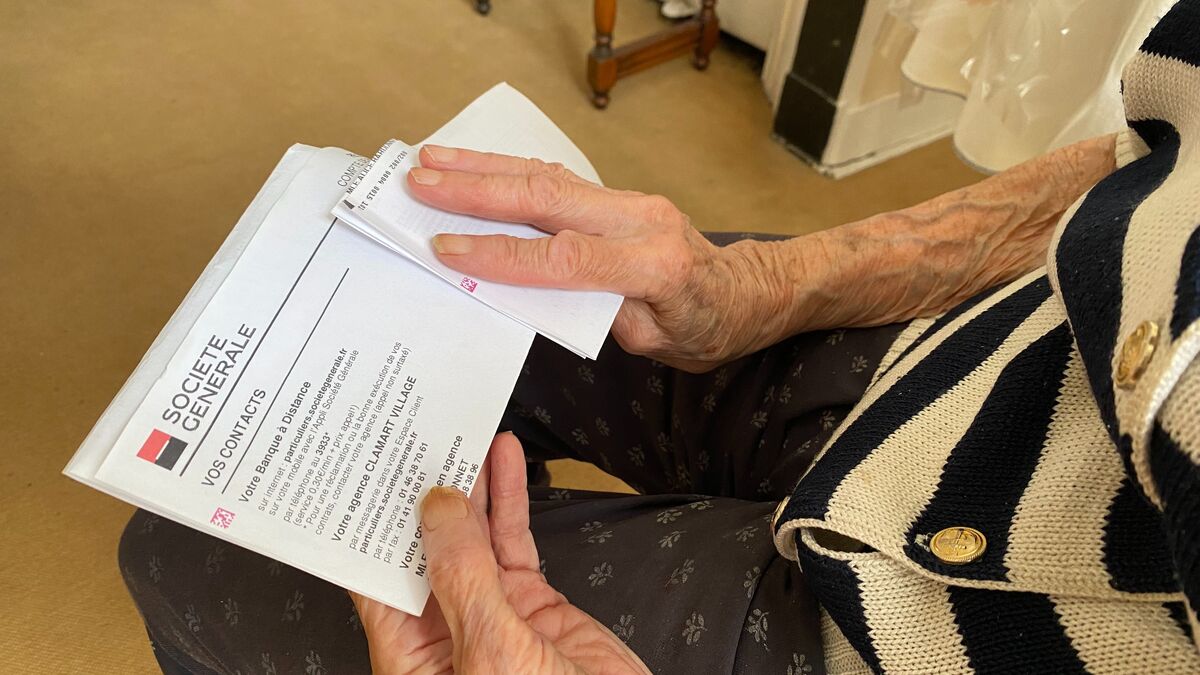 SOCIETE
GENERALE
VOS CONTACTS
Votre Banque à Distance
sur internet : particuliers.societegenerale.fr
sur votre mobile avec l'Appli Société Générale
par téléphone au 3933*
(service 0,30€/min + prix appel)
* Pour une réclamation ou la bonne exécution de vos
contrats, contacter votre agence (appel non surtaxé)
Votre agence CLAMART VILLAGE
particuliers.societegenerale.fr
par messagerie dans votre Espace Client
par téléphone : 01 46 38 70 61
par fax : 01 41 90 00 81
Votre en agence
MLE
8 38 96
COMPTE
MLE ALICE